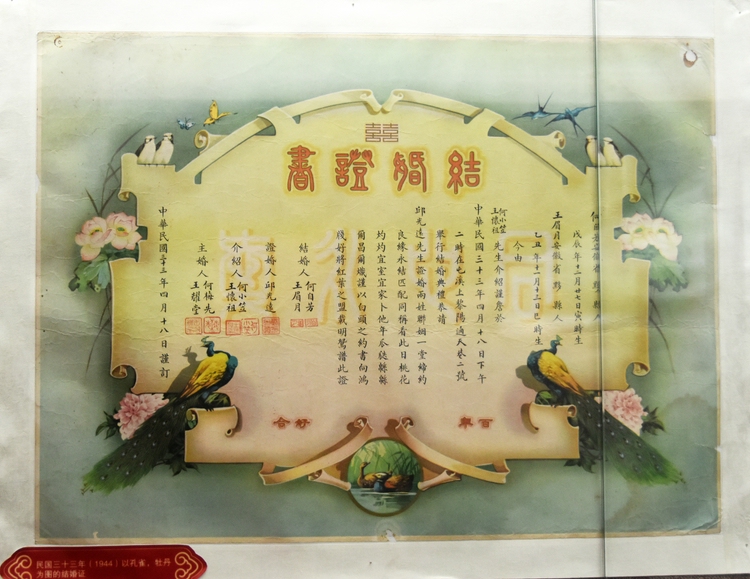 囍囍
結婚證書
何自芳安徽省黟縣人
戊辰年十一月廿七日寅時生
王眉月安徽省黟縣人
乙丑年十一月十二日巳時生
今由
何小笠
王懷祖
先生介紹謹詹於
中華民國三十三年四月十八日下午
二時在屯溪上黎陽通天巷二號
舉行結婚典禮恭請
邱光遠先生證婚兩姓聯姻一堂締約
良緣永結匹配同稱看此日桃花
灼灼宜室宜家卜他年瓜瓞緜緜
爾昌爾熾謹以白頭之約書向鴻
牋好將紅葉之盟載明鴛譜此證
結婚人 何自芳
王眉月
證婚人 邱光遠
介紹人 何小笠
王懷祖
主婚人 何梅先
王耀堂
中華民國三十三年四月十八日謹訂
百年好合
民国三十三年（1944）以孔雀、牡丹
为图的结婚证